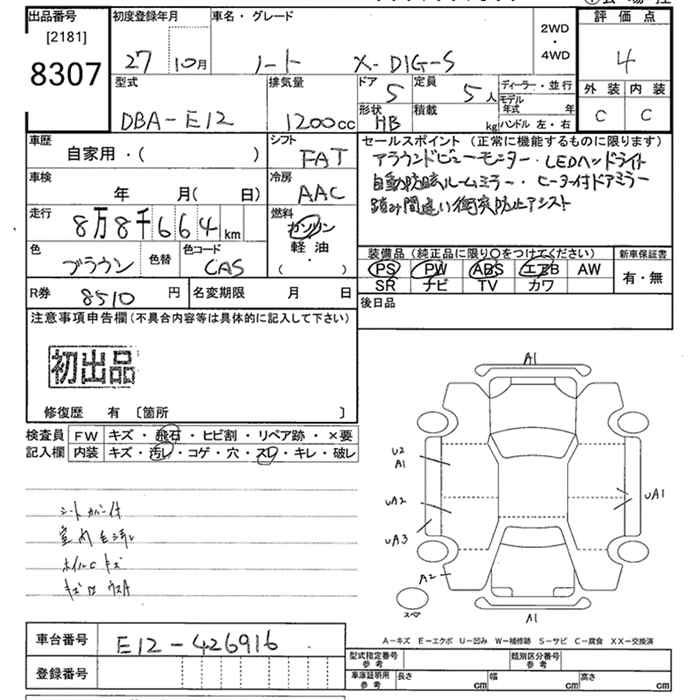 出品番号 初度登録年月 車名・グレード 2WD・4WD 評価点
[2181]
8307 27 10月 ノート X-DIG-S 4
型式 排気量 ドア 定員 ディーラー・並行 外装 内装
DBA-E12 1200cc 5 5人 モデル年式 年 C C
形状 積載 ハンドル 左・右
HB kg
車歴 シフト セールスポイント (正常に機能するものに限ります)
自家用・( ) FAT アラウンドビューモニター・LEDヘッドライト
車検 冷房 自動防眩ルームミラー・ヒーター付ドアミラー
年 月(日) AAC 踏み間違い衝突防止アシスト
走行 燃料
8万8千664km ガソリン
軽油
( ・ )
色 色替 色コード 装備品 (純正品に限り○をつけてください) 新車保証書
ブラウン CAS PS PW ABS エアB AW 有・無
SR ナビ TV カワ
R券 8510円 名変期限 月 日 後日品
注意事項申告欄(不具合内容等は具体的に記入して下さい)
初出品
修復歴 有 [箇所 ]
検査員 FW キズ・飛石・ヒビ割・リペア跡・×要
記入欄 内装 キズ・汚レ・コゲ・穴・スレ・キレ・破レ
A1
U2
A1
UA2
UA1
UA3
A2
スペア
A1
シートカバー付
ホイルCキズ
A-キズ E-エクボ U-凹み W-補修跡 S-サビ C-腐食 XX-交換済
車台番号 E12-426916
型式指定番号 参考 類別区分番号 参考
登録番号
車庫証明用 参考 長さ cm 幅 cm 高さ cm